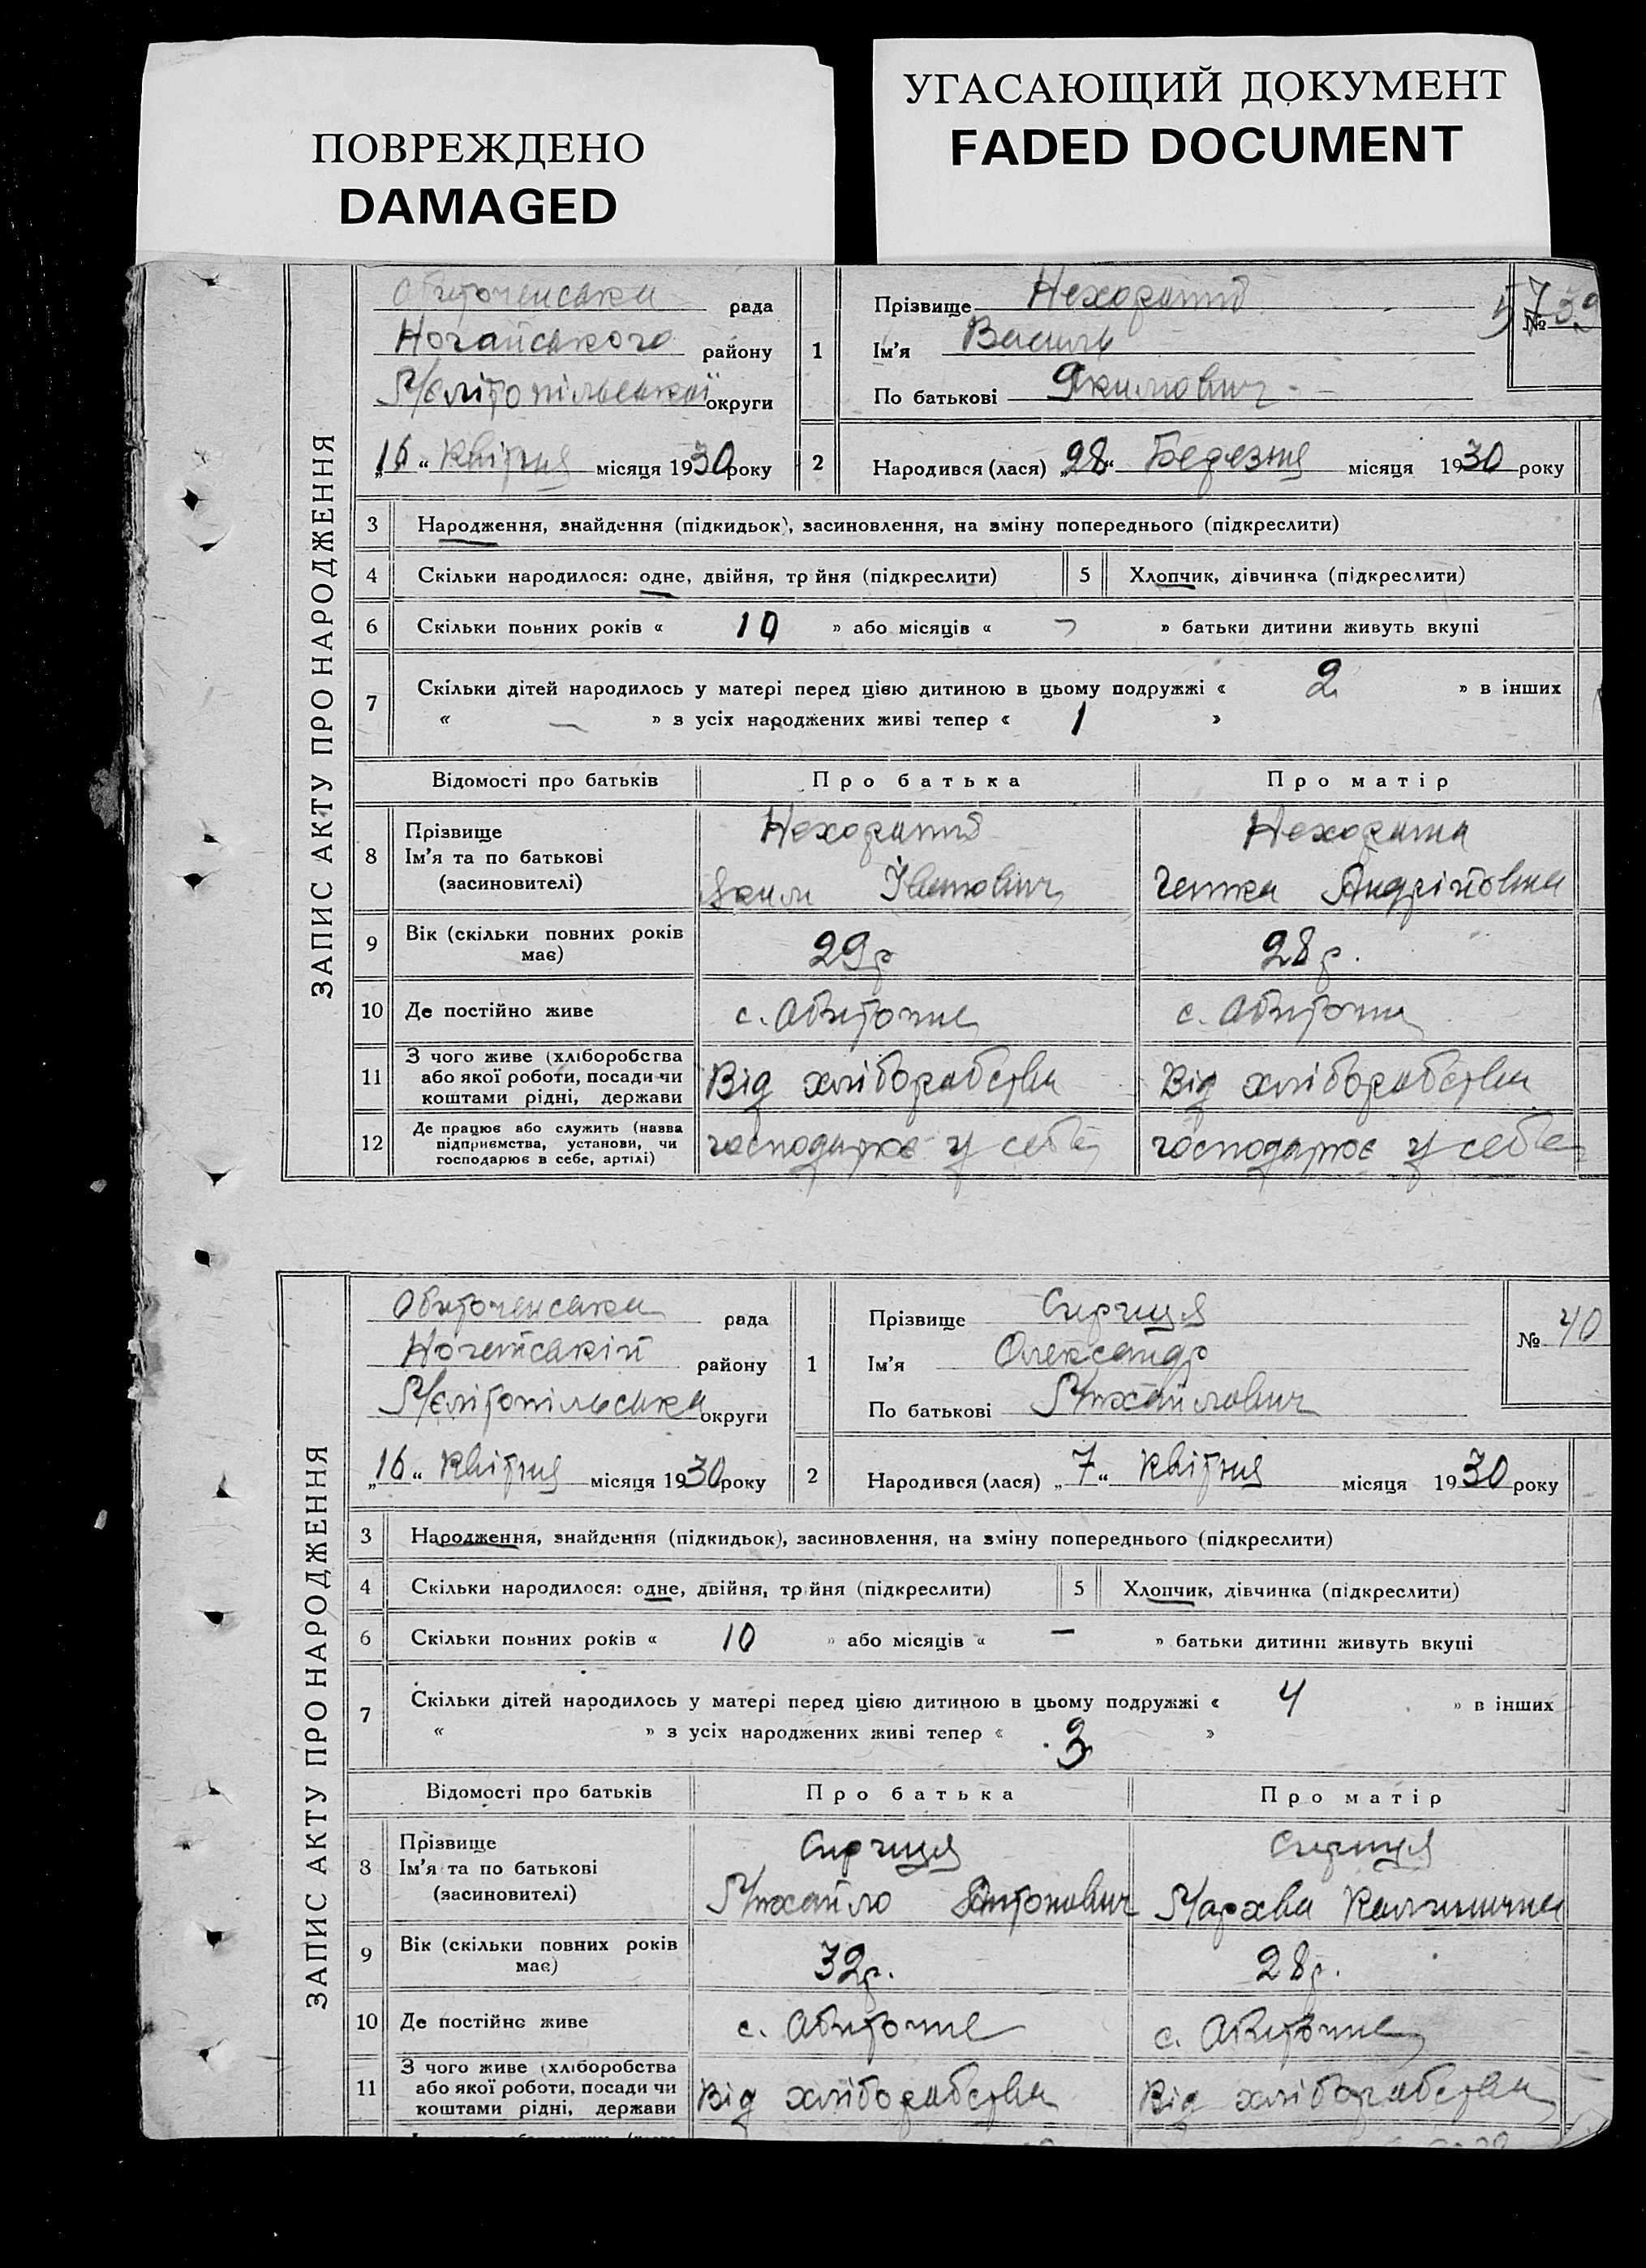 ПОВРЕЖДЕНО
DAMAGED
УГАСАЮЩИЙ ДОКУМЕНТ
FADED DOCUMENT
ЗАПИС АКТУ ПРО НАРОДЖЕННЯ
Обиточенська рада
Ногайського району
Мелітопільської округи
„16“ Квітня місяця 1930 року
1
Прізвище
Ім'я Василь
По батькові Якимович
57
№ 39
2
Народився (лася) „28“ Березня місяця 1930 року
3 Народження, знайдення (підкидьок), засиновлення, на зміну попереднього (підкреслити)
4 Скільки народилося: одне, двійня, трійня (підкреслити) 5 Хлопчик, дівчинка (підкреслити)
6 Скільки повних років « 10 » або місяців « » батьки дитини живуть вкупі
7 Скільки дітей народилось у матері перед цією дитиною в цьому подружжі « 2 » в інших
« — » з усіх народжених живі тепер « 1 »
Відомості про батьків Про батька Про матір
8 Прізвище
Ім'я та по батькові
(засиновителі)
Яким Іванович
Андріївна
9 Вік (скільки повних років має) 29 р 28 р.
10 Де постійно живе с. Обиточне с. Обиточне
11 З чого живе (хліборобства або якої роботи, посади чи коштами рідні, держави Від хліборобства Від хліборобства
12 Де працює або служить (назва підприємства, установи, чи господарює в себе, артілі) господарює у себе господарює у себе
ЗАПИС АКТУ ПРО НАРОДЖЕННЯ
Обиточенська рада
району
Мелітопільська округи
„16“ Квітня місяця 1930 року
1
Прізвище
Ім'я Олександр
По батькові Михайлович
№ 40
2
Народився (лася) „7“ Квітня місяця 1930 року
3 Народження, знайдення (підкидьок), засиновлення, на зміну попереднього (підкреслити)
4 Скільки народилося: одне, двійня, трійня (підкреслити) 5 Хлопчик, дівчинка (підкреслити)
6 Скільки повних років « 10 » або місяців « — » батьки дитини живуть вкупі
7 Скільки дітей народилось у матері перед цією дитиною в цьому подружжі « 4 » в інших
« » з усіх народжених живі тепер « 3 »
Відомості про батьків Про батька Про матір
8 Прізвище
Ім'я та по батькові
(засиновителі)
Михайло Антонович
9 Вік (скільки повних років має) 32 р. 28 р.
10 Де постійно живе с. Обиточне с. Обиточне
11 З чого живе (хліборобства або якої роботи, посади чи коштами рідні, держави Від хліборобства Від хліборобства